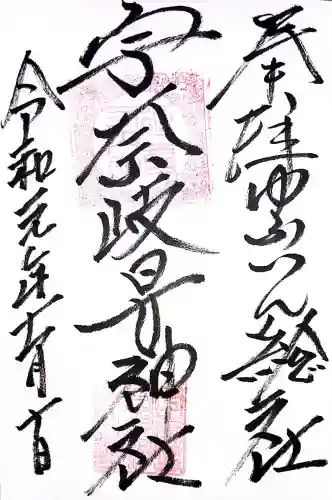 奉拝ゆふいん総社
宇奈岐日女神社
令和元年十一月十日